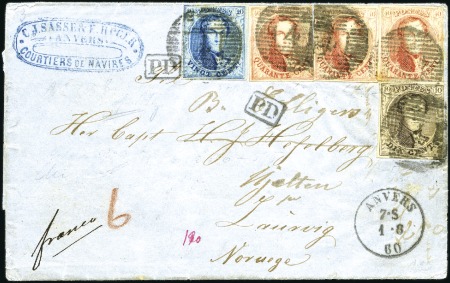 C. J. SASSE & F.
ANVERS
COURTIERS DE NAVIRES
VINGT CENT
QUARANTE CENT
QUARANTE CENT
QUARANTE CENT
PD
PD
10 10
Her Capt H J
pr
Laurvig
Norwege
franco
6
120
ANVERS
7-S
1 8
60